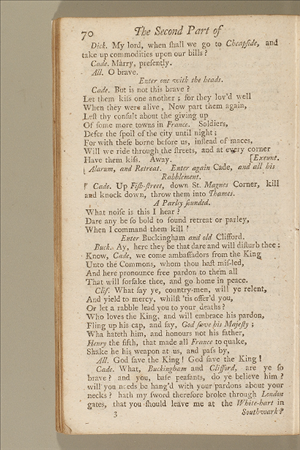 70 The Second Part of
Dick. My lord, when ſhall we go to Cheapſide, and
take up commodities upon our bills?
Cade. Marry, preſently.
All. O brave.
Enter one with the heads.
Cade. But is not this brave?
Let them kiſs one another; for they lov'd well
When they were alive. Now part them again,
Leſt they conſult about the giving up
Of ſome more towns in France. Soldiers,
Defer the ſpoil of the city until night;
For with theſe borne before us, inſtead of maces,
Will we ride through the ſtreets, and at every corner
Have them kiſs. Away. [Exeunt.
Alarum, and Retreat. Enter again Cade, and all his
Rabblement.
Cade. Up Fiſh-ſtreet, down St. Magnes Corner, kill
and knock down, throw them into Thames.
A Parley ſounded.
What noiſe is this I hear?
Dare any be ſo bold to ſound retreat or parley,
When I command them kill?
Enter Buckingham and old Clifford.
Buck. Ay, here they be that dare and will diſturb thee:
Know, Cade, we come ambaſſadors from the King
Unto the Commons, whom thou haſt miſ-led,
And here pronounce free pardon to them all
That will forſake thee, and go home in peace.
Clif. What ſay ye, country-men, will ye relent,
And yield to mercy, whilſt 'tis offer'd you,
Or let a rabble lead you to your deaths?
Who loves the King, and will embrace his pardon,
Fling up his cap, and ſay, God ſave his Majeſty;
Who hateth him, and honours not his father,
Henry the fifth, that made all France to quake,
Shake he his weapon at us, and paſs by.
All. God ſave the King! God ſave the King!
Cade. What, Buckingham and Clifford, are ye ſo
brave? and you, baſe peaſants, do ye believe him?
will you needs be hang'd with your pardons about your
necks? hath my ſword therefore broke through London
gates, that you ſhould leave me at the White-hart in
3 Southwark?